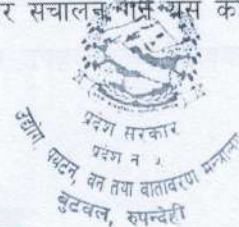 र संचालन गर्न यस क
प्रदेश सरकार
प्रदेश नं ५
उद्योग, पर्यटन, वन तथा वातावरण मन्त्रालय
बुटवल, रुपन्देही